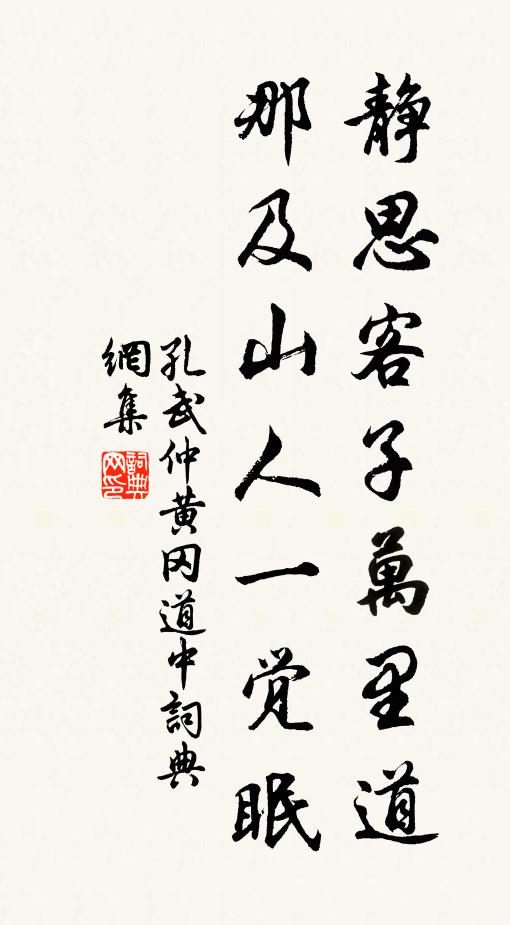 静思客子萬里道
那及山人一觉眠
孔武仲黄冈道中詞典
網集
詞典网印